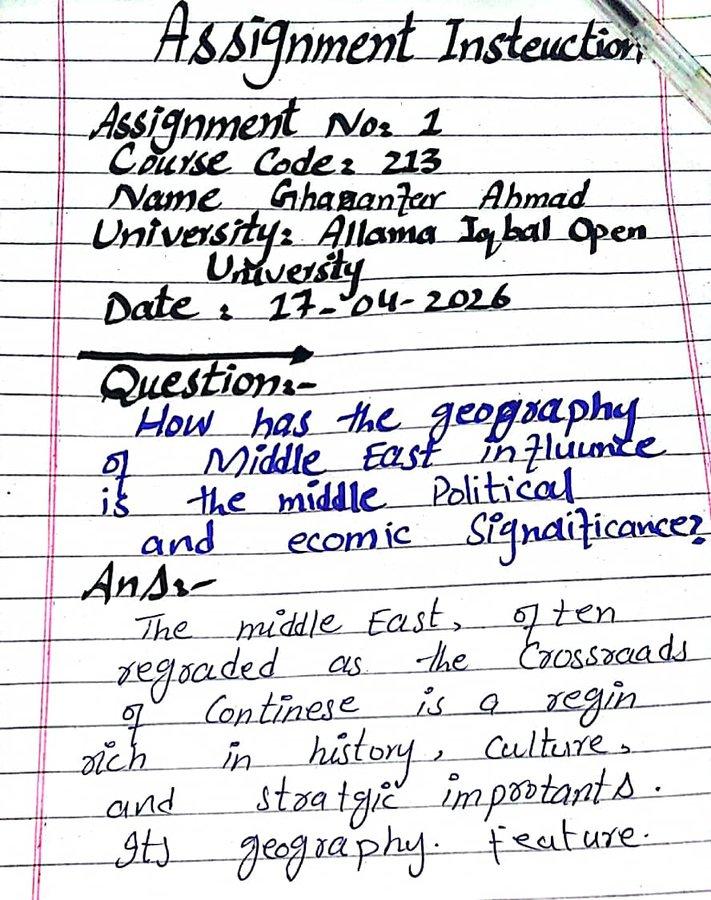 Assignment Insteuction
Assignment No: 1
Course Code: 213
Name Ghazanfar Ahmad
University: Allama Iqbal Open
University
Date : 17-04-2026
Question:-
How has the geography
of Middle East influunce
is the middle Political
and ecomic Signaificance?
Ans:-
The middle East, often
regraded as the Crossraads
of Continese is a regin
rich in history, Culture,
and stratgic improtants.
Its geography. Feature.